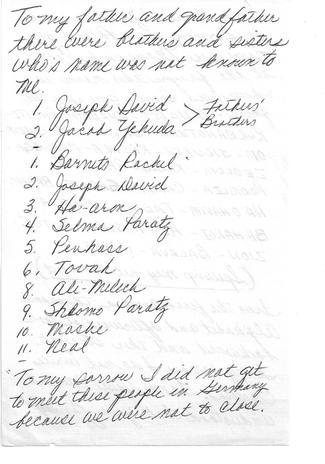 To my father and grandfather
there were brothers and sisters
who's name was not known to
me.
1. Joseph David > Fathers'
2. Jacob Yehuda Brothers
-
1. Barnets Rachel
2. Joseph David
3. Ha-aron
4. Selma Paratz
5. Penhass
6. Tovah
8. Ali-Melech
9. Shlomo Paratz
10. Moshe
11. Neal
-
To my sorrow I did not get
to meet these people in Germany
because we were not to close.